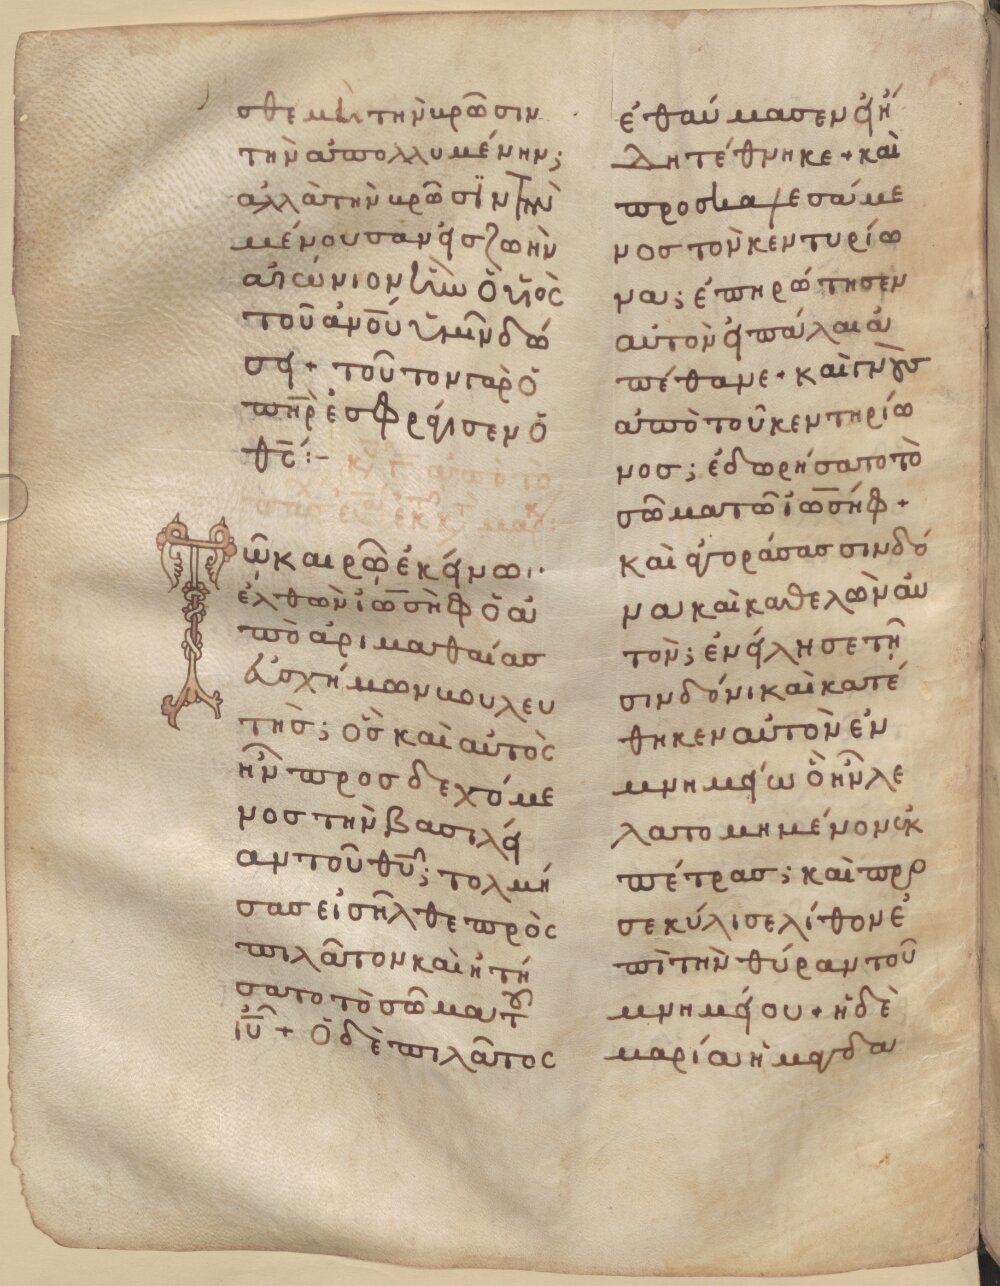 σθε μὴ τὴν βρῶσιν
τὴν ἀπολλυμένην;
ἀλλὰ τὴν βρῶσϊν τὴν
μένουσαν εἰς ζωὴν
αἰώνιον ἣν ὁ υἱὸς
τοῦ ἀν̅ο̅υ̅ ὑμῖν δώ
σει + τοῦτον γὰρ ὁ
π̅η̅ρ̅ ἐσφράγισεν ὁ
θ̅ς̅:–
Τῶ καιρῶ ἐκείνω··
ἐλθὼν ἰωσὴφ ὁ ἀ
πὸ ἀριμαθαίας
εὐσχήμων βουλευ
τὴς; ὃς καὶ αὐτὸς
ἦν προσδεχόμε
νος τὴν βασιλεί
αν τοῦ θ̅υ̅; τολμή
σας εἰσῆλθε πρὸς
πιλᾶτον καὶ ἠτή
σατο τὸ σῶμα τοῦ
ἰ̅υ̅ + ὁ δὲ πιλᾶτος
ἐθαύμασεν εἰ ἤ
δη τέθνηκε + καὶ
προσκαλεσάμε
νος τὸν κεντυρίω
να; ἐπηρώτησεν
αὐτὸν εἰ πάλαι ἀ
πέθανε + καὶ γνοὺς
ἀπὸ τοῦ κεντηρίω
νος; ἐδωρήσατο τὸ
σῶμα τῶ ἰωσήφ +
καὶ ἀγοράσας σινδό
να καὶ καθελὼν αὐ
τὸν; ἐνείλησε τῆ
σινδόνι καὶ κατέ
θηκεν αὐτὸν ἐν
μνημείω ὃ ἦν λε
λατομημένον ἐκ
πέτρας; καὶ προ
σεκύλισε λίθον ἐ
πὶ τὴν θύραν τοῦ
μνημείου + ἡ δὲ
μαρία ἡ μαγδα